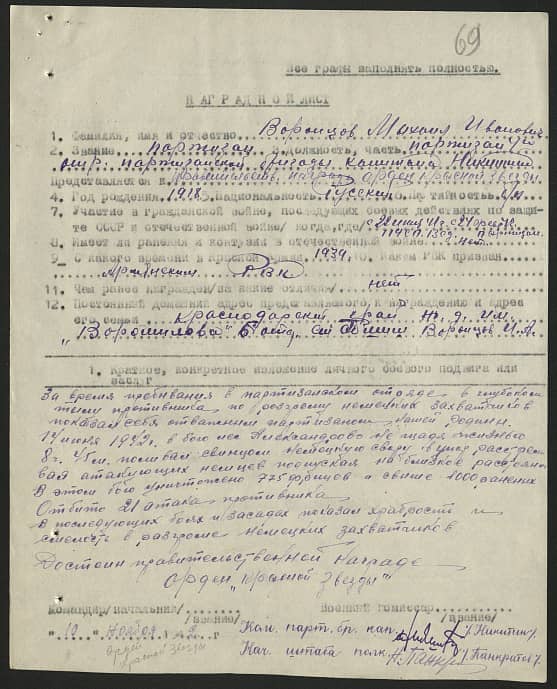 69
Все графы заполнять полностью.
НАГРАДНОЙ ЛИСТ
1. Фамилия, имя и отчество Воронцов Михаил Иванович
2. Звание партизан 3. Должность, часть партизан
отр. партизанской бригады капитана Никитина
Представляется к орден красной звезды
4. Год рождения 1918 5. Национальность Русский 6. Партийность
7. Участие в гражданской войне, последующих боевых действиях по защи-
те СССР и отечественной войне/ когда, где/
8. Имеет ли ранения и контузии в отечественной войне нет
9. С какого времени в красной армии 1939, 10. Каким РВК призван
РВК
11. Чем ранее награжден/за какие отличия/ нет
12. Постоянный домашний адрес представляемого к награждению и адрес
его семьи Краснодарский край
"Ворошилова" Воронцов И.А.
1. Краткое, конкретное изложение личного боевого подвига или
заслуг
За время пребывания в партизанском отряде в глубоком
тылу противника по разгрому немецких захватчиков
показал себя отважным партизаном нашей Родины.
14 июня 1942г. в бою лес Александрово не щадя жизнью
8г. 45м. поливал свинцом немецкую свору в упор расстрели
вая атакующих немцев подпуская на близкое расстояние
В этом бою уничтожено 775 фрицов и свыше 1000 раненых
Отбито 21 атака противника
В последующих боях и засадах показал храбрость и
смелость в разгроме немецких захватчиков
Достоин правительственной награде
орден "Красной Звезды"
Командир/начальник/........ Военный комиссар........
/звание/ /звание/
"10" Ноября 1942г Ком. парт. бр. кап. /Никитин/
орден красной звезды Нач. штаба полк. /Панкратов/